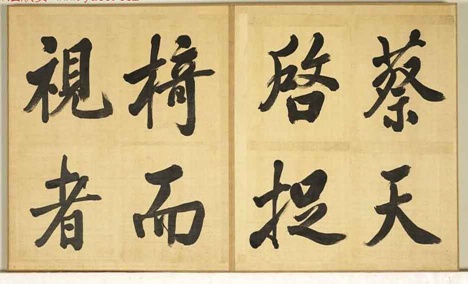 蔡天
啓捉
椅而
視者